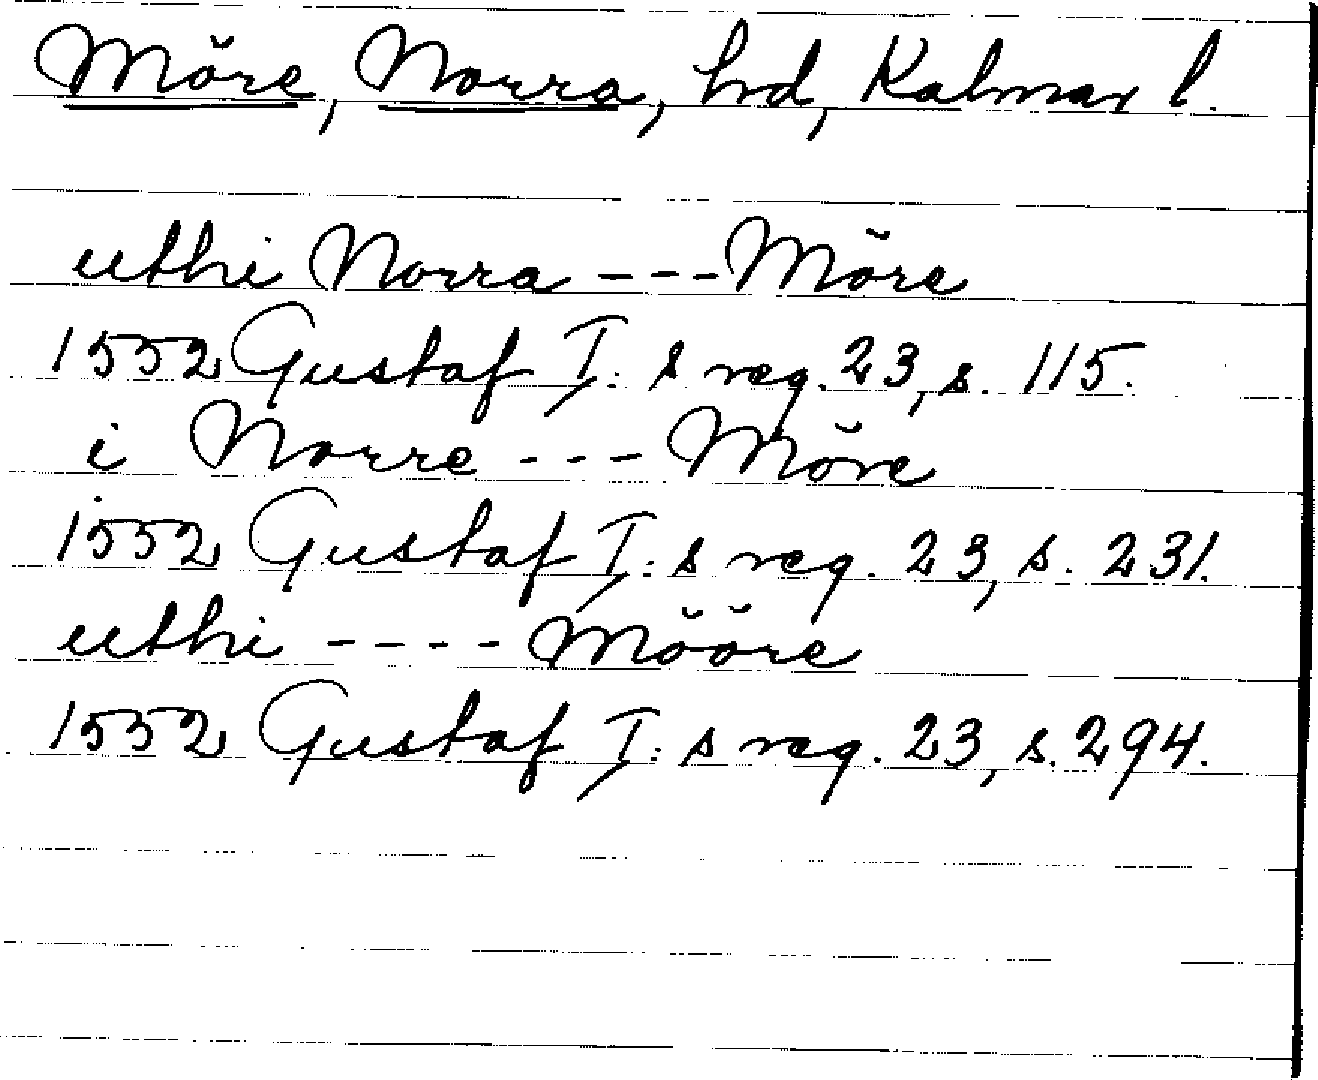 Möre, Norra, hd, Kalmar l.
uthi Norra --- Möre
1552 Gustaf I:s reg. 23, s. 115.
i Norre --- Möre
1552 Gustaf I:s reg. 23, s. 231.
uthi ---- Mööre
1552 Gustaf I:s reg. 23, s. 294.